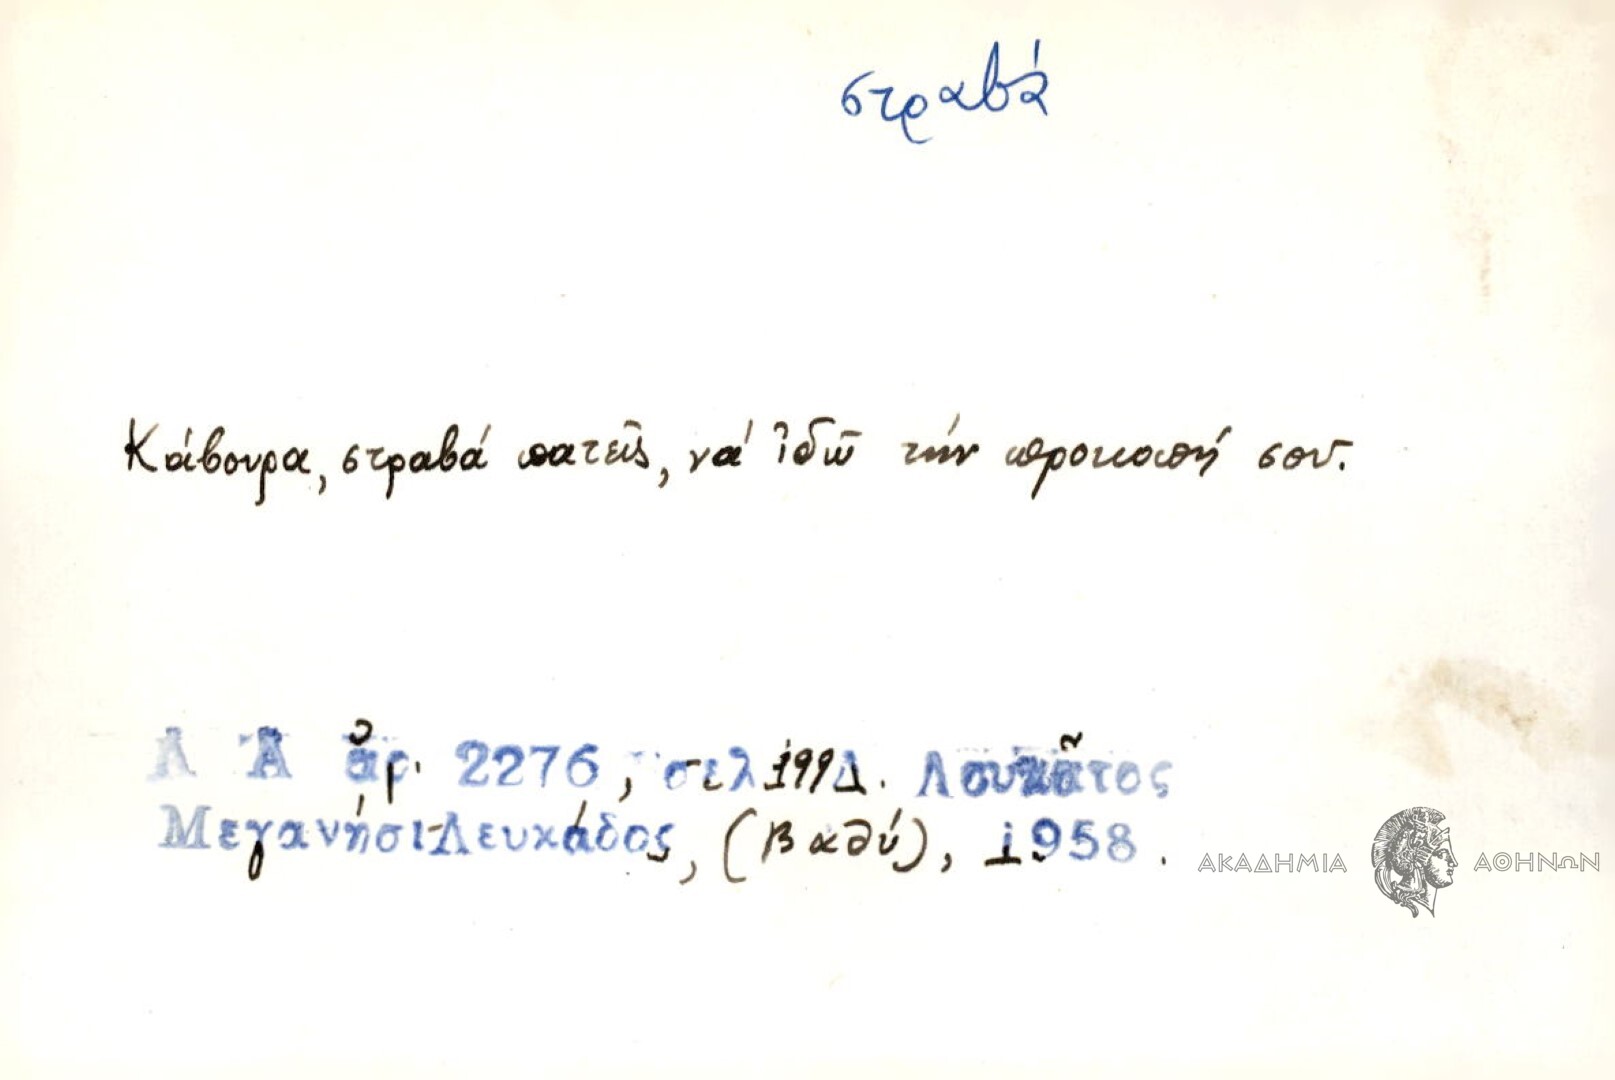 στραβά
Κάβουρα, στραβά πατεῖς, νά ἰδῶ τήν προκοπή σου.
Λ Α ἀρ. 2276, σελ 199 Δ. Λουκᾶτος
Μεγανήσι-Λευκάδος, (Βαθύ), 1958.
ΑΚΑΔΗΜΙΑ ΑΘΗΝΩΝ